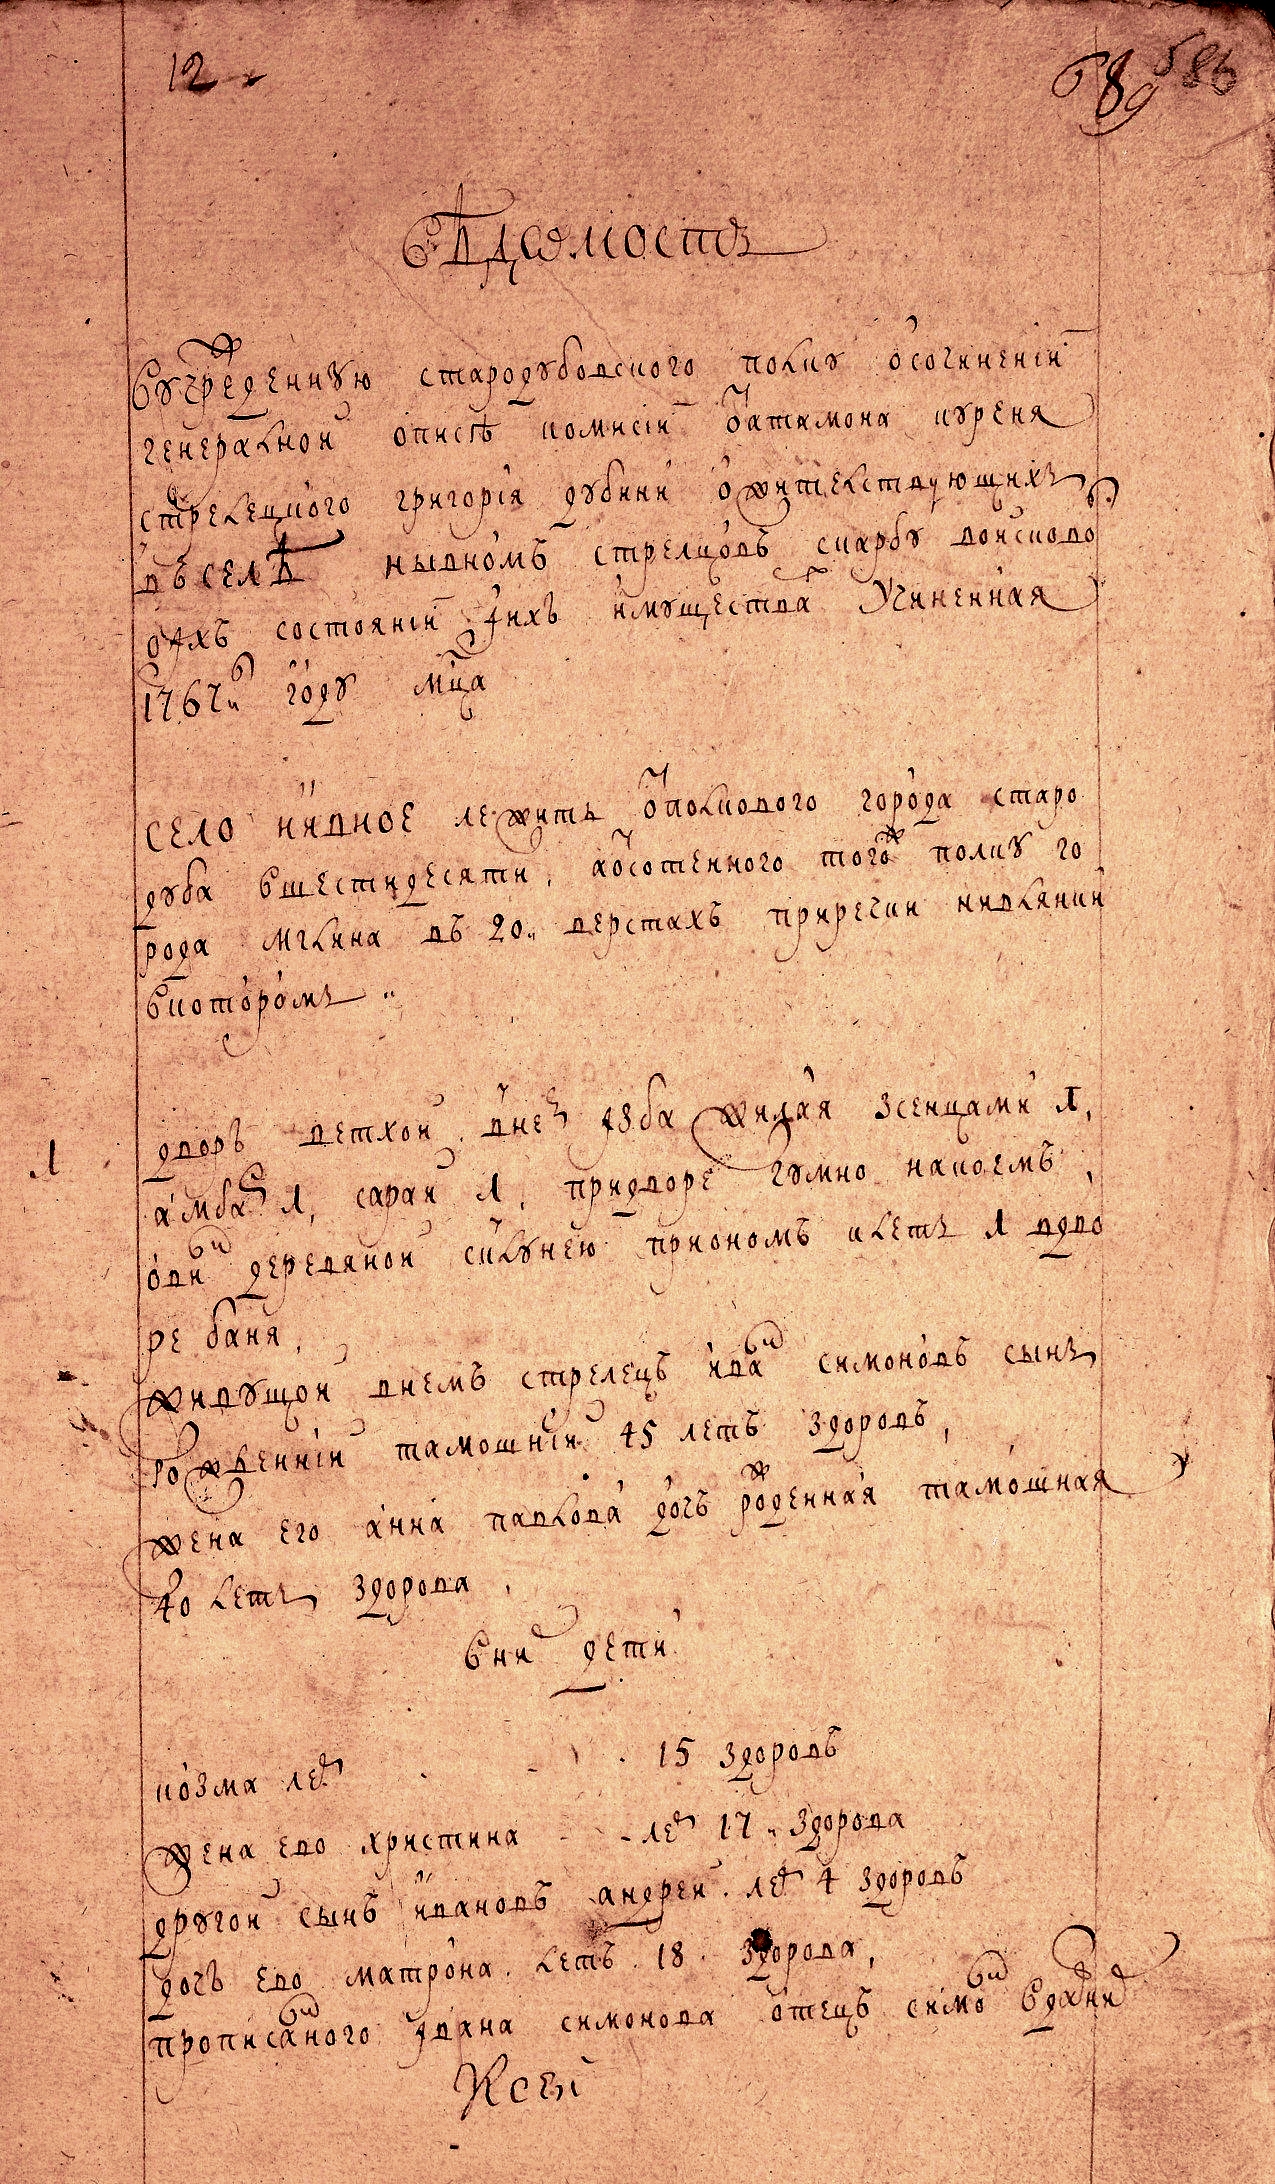 12
689 586
Вѣдомостъ
Вучрежденную стародубовского полку о сочинении
генералной описѣ комисии от атамона куреня
стрелецкого григория дубини о жителствующихъ
въ селѣ нывномъ стрелцовъ скарбу войсково
о ихъ состоянии и ихъ имущества учиненная
1767 году мца
село нивное лежить от полкового города старо
дуба в шестидесяти, а от сотенного того ж полку го
рода мглина въ 20 верстахъ при речки нивлянки
в которомъ
1
дворъ ветхой в ней изба жилая з сенцами 1,
амбар 1, сарай 1, при дворе гумно на коемъ,
овин деревяной с клунею при ономъ клеть 1 в дво
ре баня,
живущой в немъ стрелецъ иван симоновъ сынъ
рожденний тамошний 45 летъ здоровъ,
жена его анна павлова дочъ рожденная тамошная
40 летъ здорова,
в них дети
козма лет 15 здоровъ
жена ево христина лет 17 здорова
другой сынъ ивановъ андрей лет 4 здоровъ
дочъ ево матрона летъ 18 здорова,
прописанного ивана симонова отецъ симон в давних
К сей